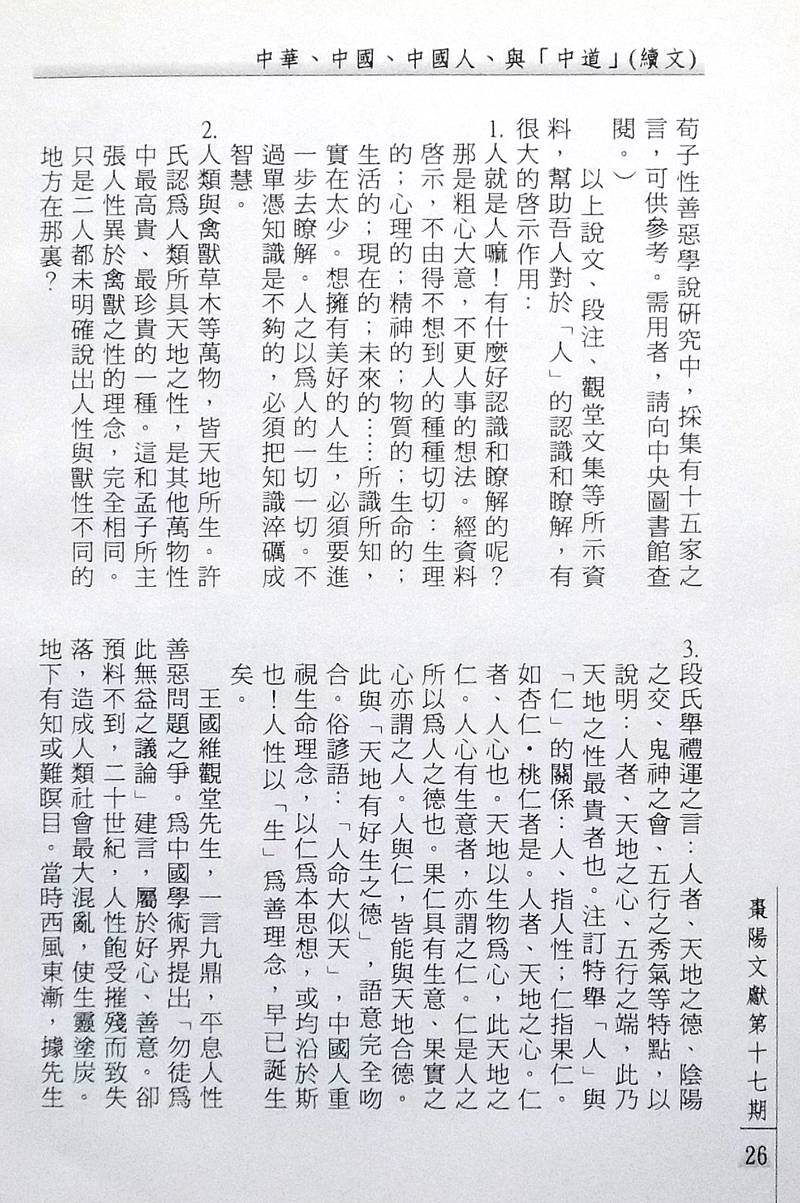 中華、中國、中國人、與「中道」(續文)
荀子性善惡學說研究中，採集有十五家之
言，可供參考。需用者，請向中央圖書館查
閱。）
以上說文、段注、觀堂文集等所示資
料，幫助吾人對於「人」的認識和瞭解，有
很大的啓示作用：
1.人就是人嘛！有什麼好認識和瞭解的呢？
那是粗心大意，不更人事的想法。經資料
啓示，不由得不想到人的種種切切：生理
的；心理的；精神的；物質的；生命的；
生活的；現在的；未來的……所識所知，
實在太少。想擁有美好的人生，必須要進
一步去瞭解。人之以爲人的一切一切。不
過單憑知識是不夠的，必須把知識淬礪成
智慧。
2.人類與禽獸草木等萬物，皆天地所生。許
氏認爲人類所具天地之性，是其他萬物性
中最高貴、最珍貴的一種。這和孟子所主
張人性異於禽獸之性的理念，完全相同。
只是二人都未明確說出人性與獸性不同的
地方在那裏？
3.段氏舉禮運之言：人者、天地之德、陰陽
之交、鬼神之會、五行之秀氣等特點，以
說明：人者、天地之心、五行之端，此乃
天地之性最貴者也。注訂特舉「人」與
「仁」的關係：人、指人性；仁指果仁。
如杏仁・桃仁者是。人者、天地之心。仁
者、人心也。天地以生物爲心，此天地之
仁。人心有生意者，亦謂之仁。仁是人之
所以爲人之德也。果仁具有生意、果實之
心亦謂之人。人與仁，皆能與天地合德。
此與「天地有好生之德」，語意完全吻
合。俗諺語：「人命大似天」，中國人重
視生命理念，以仁爲本思想，或均沿於斯
也！人性以「生」爲善理念，早已誕生
矣。
王國維觀堂先生，一言九鼎，平息人性
善惡問題之爭。爲中國學術界提出「勿徒爲
此無益之議論」建言，屬於好心、善意。卻
預料不到，二十世紀，人性飽受摧殘而致失
落，造成人類社會最大混亂，使生靈塗炭。
地下有知或難瞑目。當時西風東漸，據先生
棗陽文獻第十七期
26